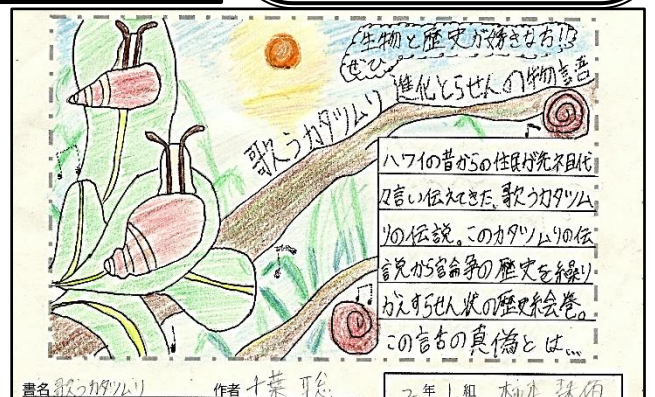 生物と歴史が好きな方!!
ぜひ
歌うカタツムリ
進化とらせんの物語
ハワイの昔からの住民が先祖代
々言い伝えてきた、歌うカタツム
リの伝説。このカタツムリの伝
説から論争の歴史を繰り
かえすらせん状の歴史絵巻。
この話の真偽とは…
書名 歌うカタツムリ 作者 千葉 聡
2年1組